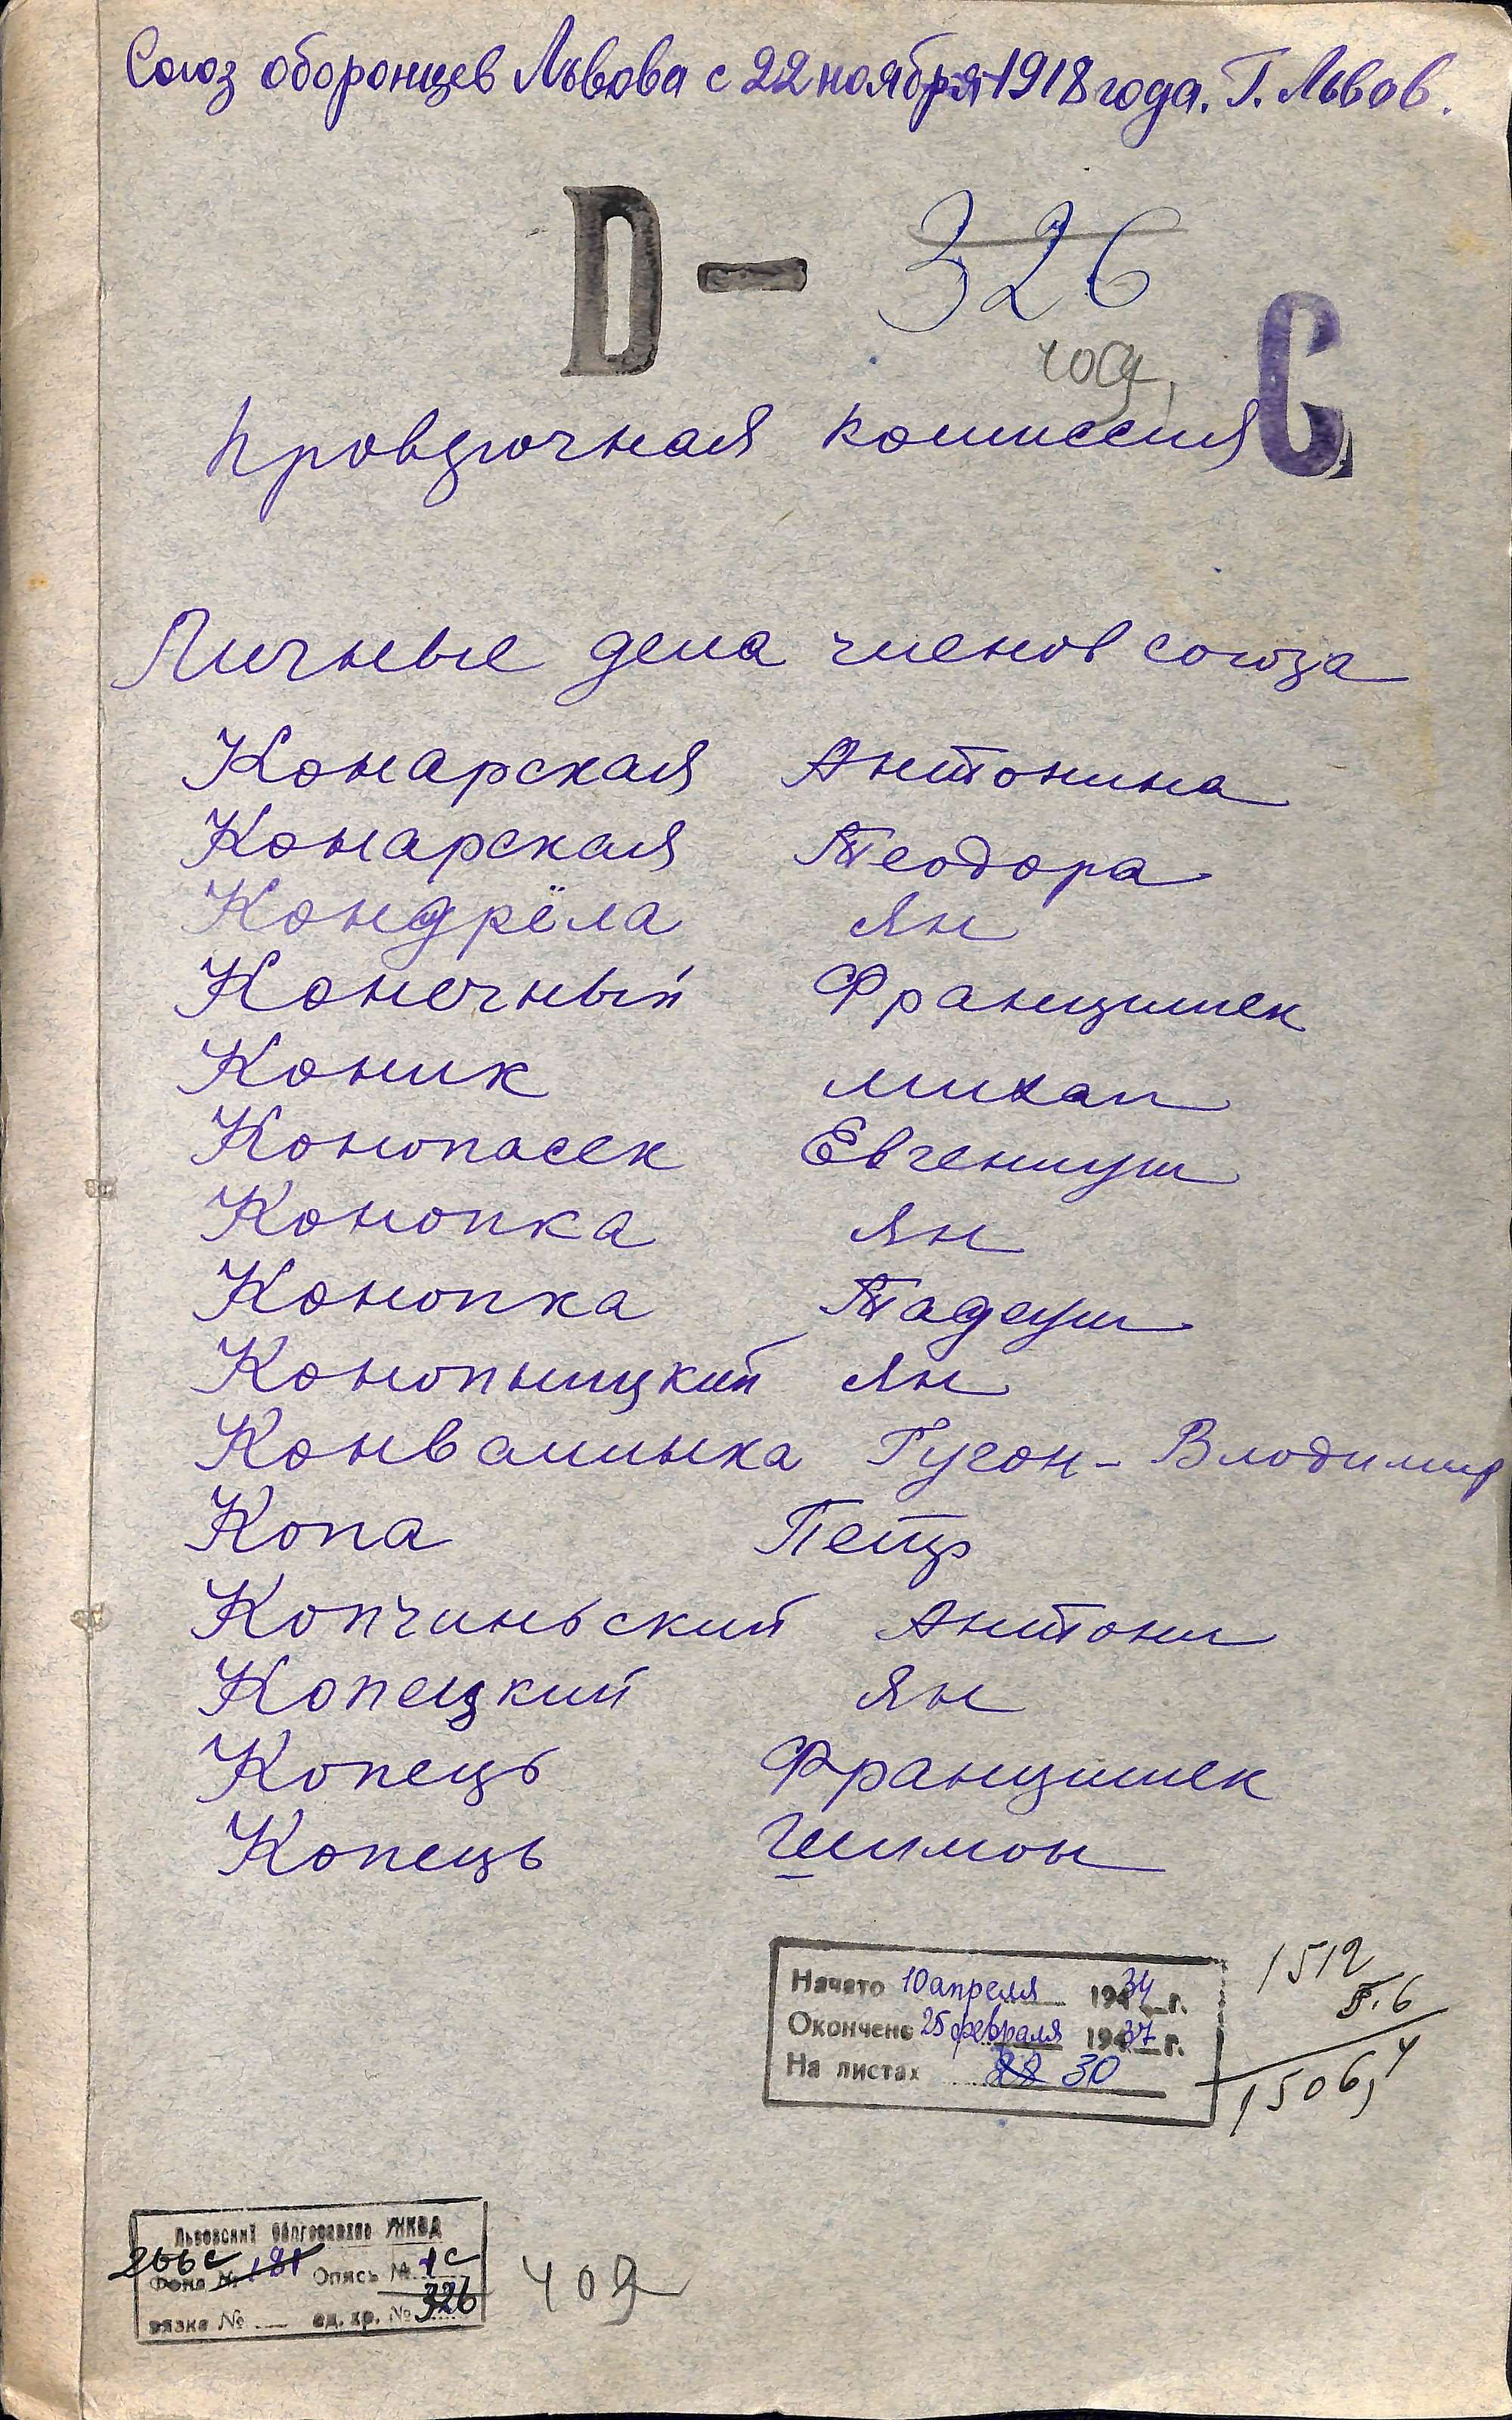 Союз оборонцев Львова с 22 ноября 1918 года. Г. Львов.
D — 326
409,
С
Провдючная комиссия
Личные дела членов союза
Конарская Антонина
Конарская Теодора
Кондрёла Ян
Конечный Францишек
Коник Михал
Конопасек Евгениуш
Конопка Ян
Конопка Тадеуш
Конопницкий Ян
Конвалинка Гугон - Влодимир
Копа Петр
Копчиньский Антони
Копецкий Ян
Копець Францишек
Копець Шимон
Начато 10 апреля 1934 г.
Окончено 25 февраля 1937 г.
На листах 30
1512
5.6
1506,4
Львовский Облгосархив УНКВД
266с Фонд № 181 Опись № 1с
вязка № ед. хр. № 326
409